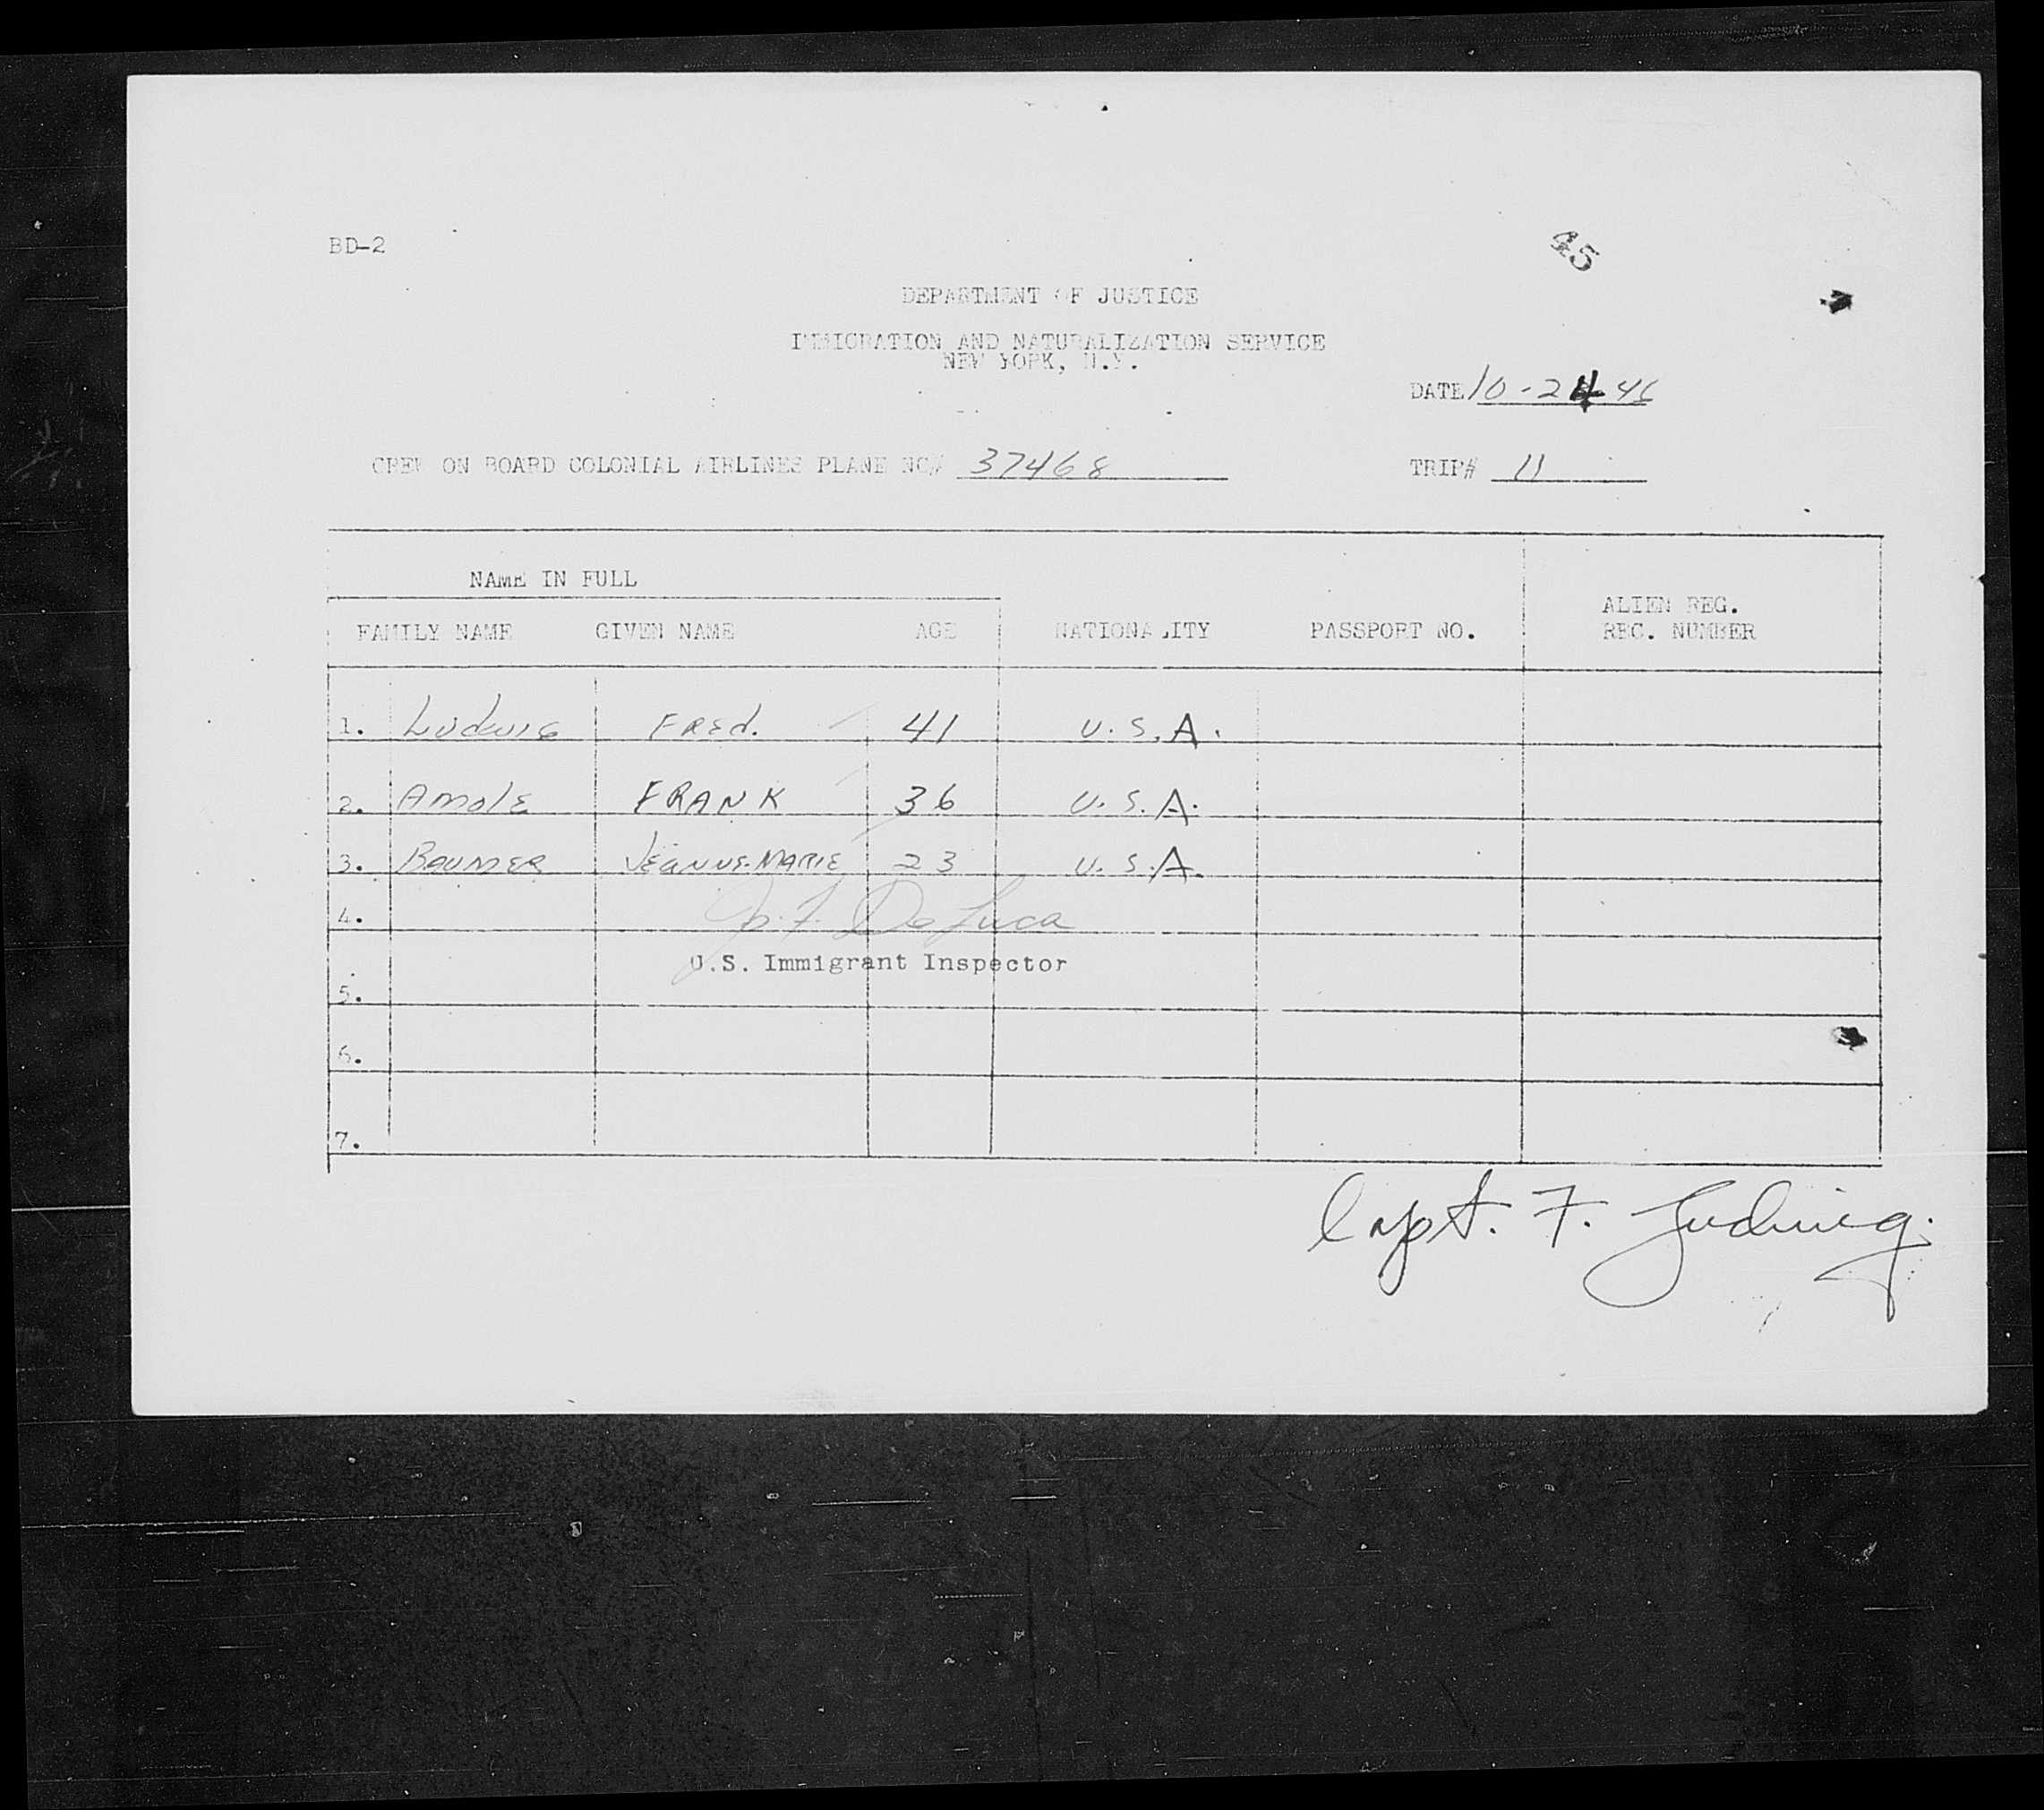 BD-2
45
DEPARTMENT OF JUSTICE
IMMIGRATION AND NATURALIZATION SERVICE
NEW YORK, N.Y.
DATE 10-24-46
CREW ON BOARD COLONIAL AIRLINES PLANE NC# 37468 TRIP# 11
NAME IN FULL
FAMILY NAME GIVEN NAME AGE NATIONALITY PASSPORT NO. ALIEN REG. REC. NUMBER
1. Ludwig Fred. 41 U.S.A.
2. Amole FRANK 36 U.S.A.
3. Baumer Jeanne-Marie 23 U.S.A.
4. De Luca
U.S. Immigrant Inspector
5.
6.
7.
Capt. F. Ludwig.